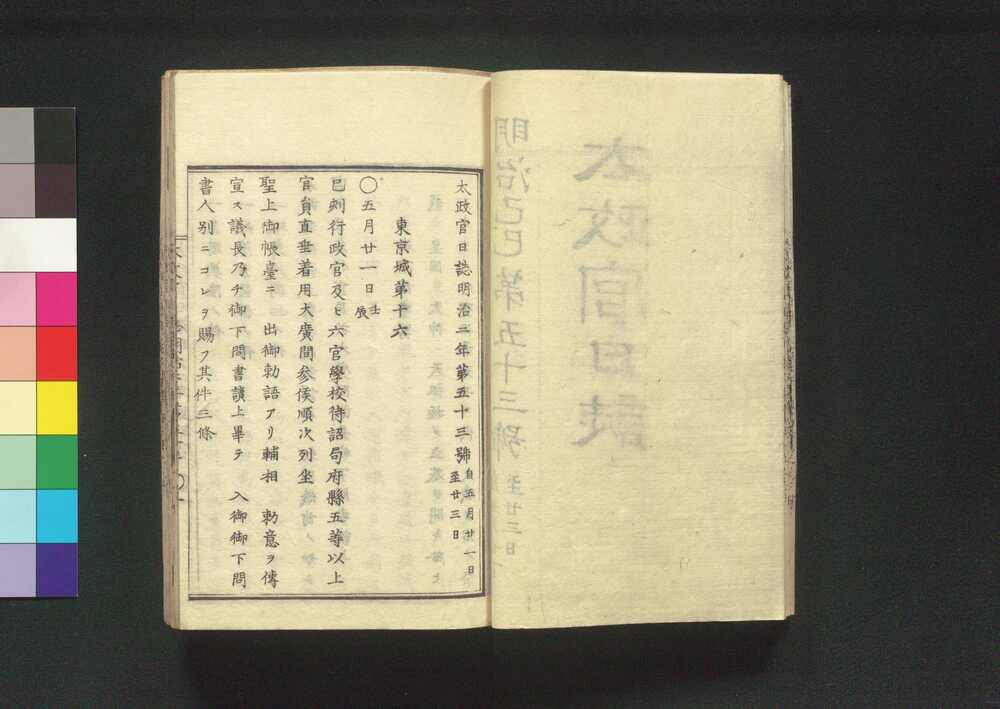 太政官日誌明治二年第五十三號 自五月廿一日 至廿三日
東京城第十六
〇五月廿一日 壬辰
巳刻行政官及ヒ六官學校待詔局府縣五等以上
官員直垂着用大廣間参候順次列坐
聖上御帳臺ニ 出御勅語アリ輔相 勅意ヲ傳
宣ス議長乃チ御下問書讀上畢テ 入御御下問
書人別ニコレヲ賜フ其件三條